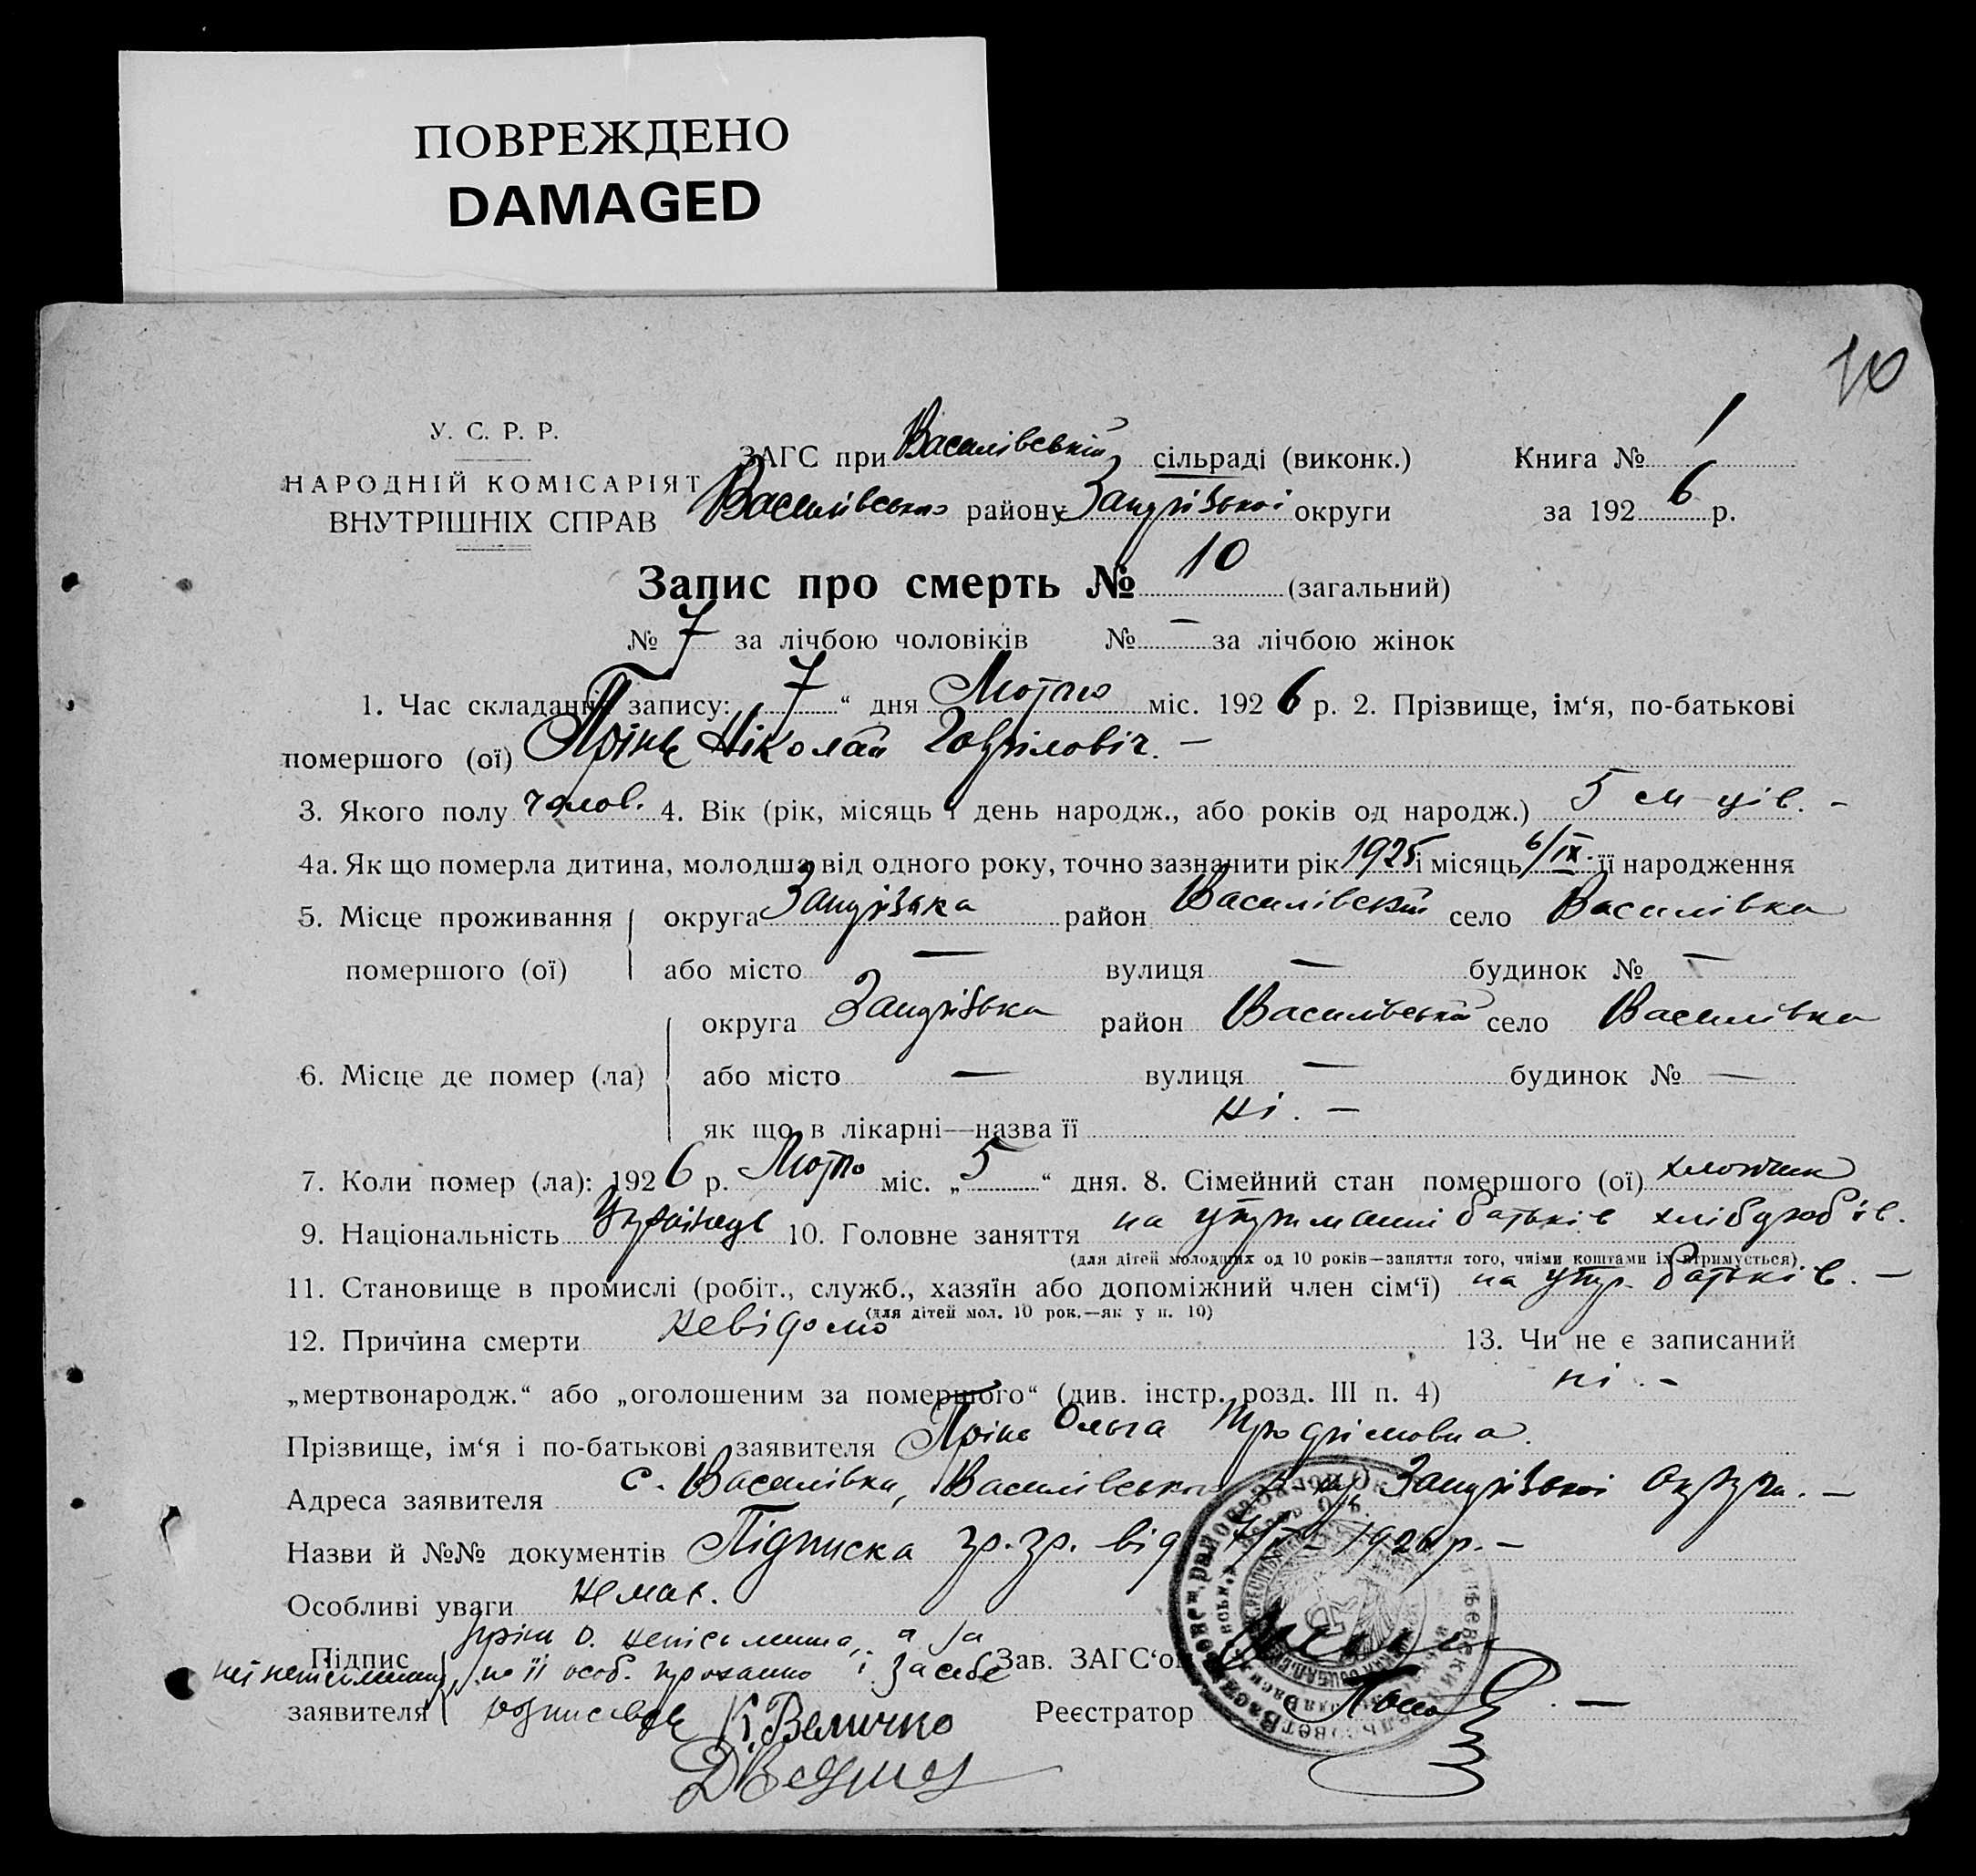 ПОВРЕЖДЕНО
DAMAGED
10
У. С. Р. Р.
НАРОДНІЙ КОМІСАРІЯТ
ВНУТРІШНІХ СПРАВ
ЗАГС при Василівській сільраді (виконк.)
Василівсько району Запрізької округи
Книга № 1
за 1926 р.
Запис про смерть № 10 (загальний)
№ 7 за лічбою чоловіків № — за лічбою жінок
1. Час складання запису: 7 “ дня Лютого міс. 1926 р. 2. Прізвище, ім‘я, по-батькові
помершого (ої) Ніколай Гавріловіч. —
3. Якого полу чолов. 4. Вік (рік, місяць і день народж., або років од народж.) 5 м-ців. —
4а. Як що померла дитина, молодша від одного року, точно зазначити рік 1925 і місяць 6/IX. її народження
5. Місце проживання округа Запрізька район Василівский село Василівка
помершого (ої) або місто — вулиця — будинок № —
округа Запрізька район Василівський село Василівка
6. Місце де помер (ла) або місто — вулиця — будинок № —
як що в лікарні—назва її ні. —
7. Коли помер (ла): 1926 р. Лютого міс. „ 5 “ дня. 8. Сімейний стан помершого (ої) хлопчик
9. Національність Українець 10. Головне заняття на утриманні батьків хліборобів.
(для дітей молодших од 10 років—заняття того, чиїми коштами їх втримується)
11. Становище в промислі (робіт., служб., хазяїн або допоміжний член сім‘ї) на утр. батьків. —
(для дітей мол. 10 рок.—як у п. 10)
12. Причина смерти невідомо 13. Чи не є записаний
„мертвонародж.“ або „оголошеним за помершого“ (див. інстр. розд. III п. 4) ні. —
Прізвище, ім‘я і по-батькові заявителя Ольга Трофімовна.
Адреса заявителя с. Василівка, Василівського р-ну Запрізької Округи. —
Назви й №№ документів Підписка гр.гр. від 7/II—1926 р. —
Особливі уваги немає.
Підпис О. неписьменна, а за
неї неписьменну, по її особ. проханню і за себе Зав. ЗАГС‘ом
заявителя розписавсь К. Величко Реєстратор